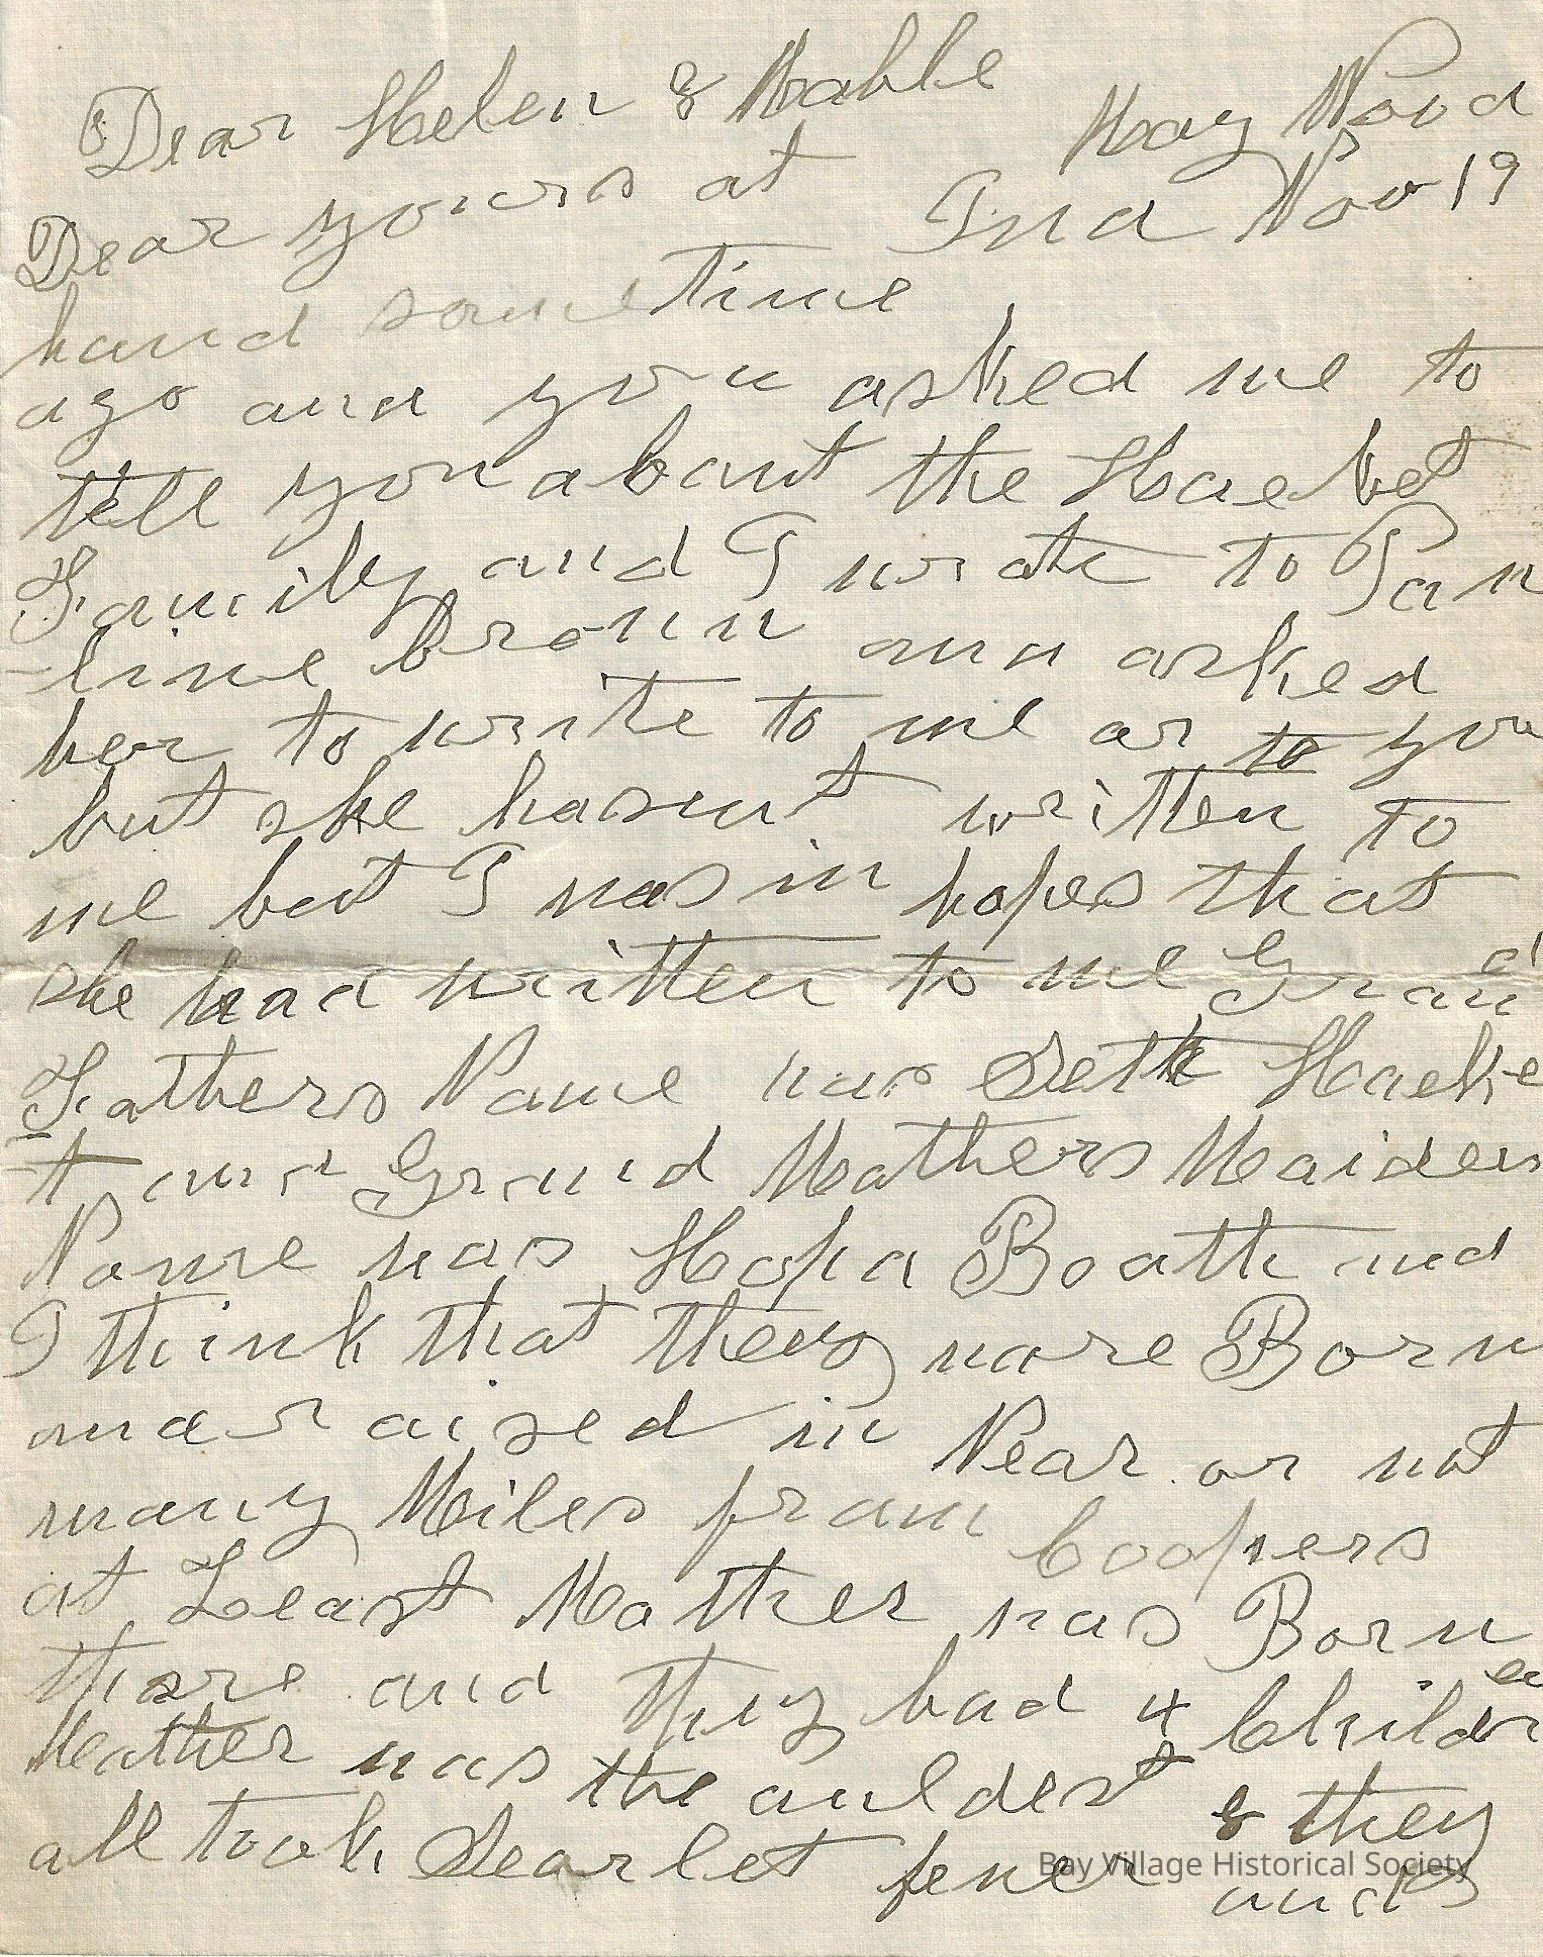 Dear Helen & Mable
May Wood
Dear yours at
Ind Nov 19
hand some time
ago and you asked me to
tell you about the Hacket
Family and I wrote to Pau
-line Brown and asked
her to write to me or to you
but she hasent written to
me but I was in hopes that
she had written to me Grand
Fathers Name was Seth Hacke
-t and Grand Mothers Maiden
Name was Hopa Booth and
I think that they ware Born
and raised in Near or not
many Miles from Coopers
at Least Mother was Born
thare and they had 4 Children
Mother was the auldest & they
all took Scarlet fever and
Bay Village Historical Society